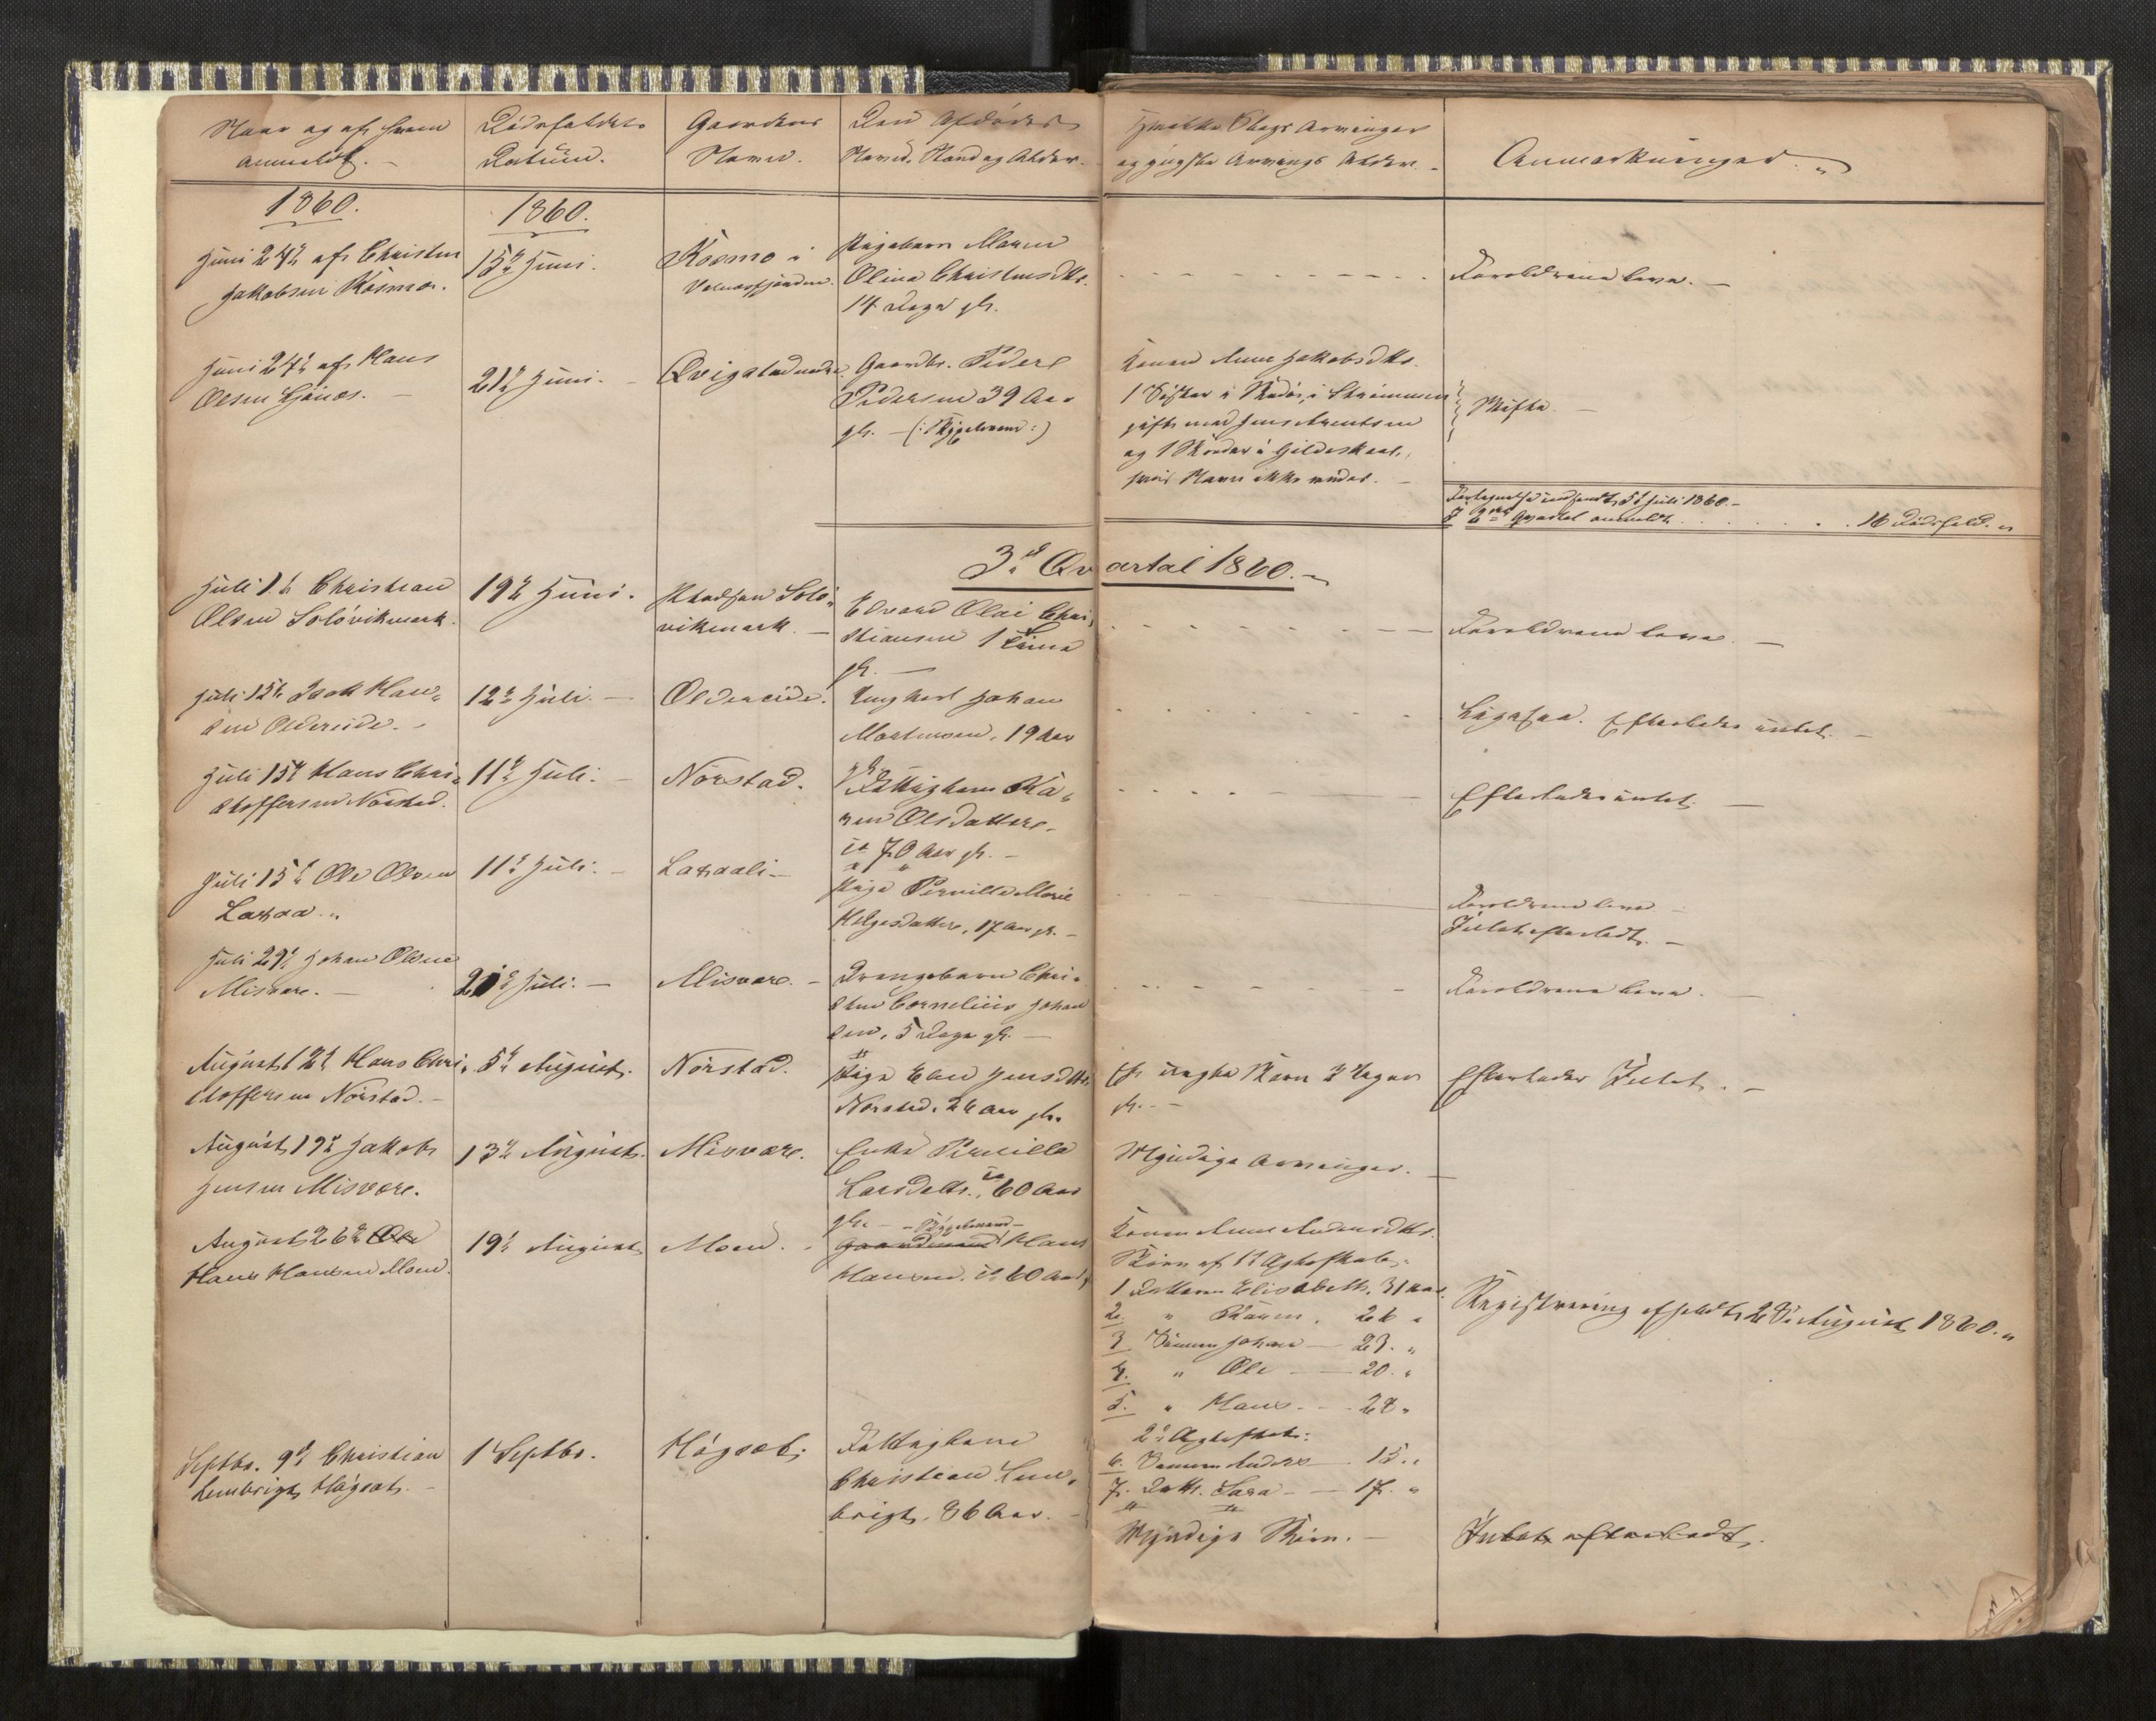 Naar og af hvem
anmeldt.
Dödsfaldets
Datum.
Gaardens
Navn.
Den Afdödes
Navn, Stand og Alder.
Hvilke Slags Arvinger
og yngste Arvings Alder.
Anmærkninger.
1860.
1860.
Juni 24de af Christen
Jakobsen Kosmo.
15de Juni.
Kosmo i
Valnæsfjorden.
Pigebarn Maren
Olina Christensdtr.
14 Dage gl.
Forældrene leve.
Juni 24de af Hans
Olsen
21de Juni.
Qvigstad nedre.
Gaardbr. Peder
Pedersen 39 Aar
gl. - (: Pigebarnd :)
Konen Anne Jakobsdtr.
1 Söster i i
gift med Jens Arentsen
og 1 Broder i Gildeskaal,
hvis Navn ikke vides.
Skifte.
Fortegnelse indsendt 5te Juli 1860.
I 2det Qvartal anmeldt . . . . . . 16 Dödsfald.
3die Qvartal 1860.
Juli 1ste Christian
Olsen Solövikmark.
19de Juni.
Pladsen Solö-
vikmark.
Edvard Olai Chri-
stiansen 1 Time
gl.
Forældrene leve.
Juli 15de Isak Han-
sen Oldereide.
12te Juli.
Oldereide.
Ungkarl Johan
Mortensen, 19 Aar
gl.
Efterlader intet.
Juli 15de Hans Chri-
stoffersen Norstad.
11te Juli.
Norstad.
Fattiglem Ka-
ren Olsdatter,
ca 70 Aar gl.
Efterlader intet.
Juli 15de Ole Olsen
Laxaa.
11te Juli.
Laxaali
Pige Pernille Marie
Helgesdatter, 17 Aar gl.
Forældrene leve
Intet efterladt.
Juli 29de Johan Olsen
Misvær.
21de Juli.
Misvær.
Drengebarn Chri-
sten Cornelius Johan
sen, 5 Dage gl.
Forældrene leve.
August 12te Hans Chri-
stoffersen Norstad.
5te August.
Norstad.
Pige Elen Jensdtr.
Norstad, 24 Aar gl.
Et uægte Barn 3 Uger
gl.
Efterlader Intet.
August 19de Jakob
Jensen Misvær.
13de August.
Misvær.
Enke Pernille
Larsdatter, ca 60 Aar
gl.
Myndige Arvinger.
August 26de Ole
Hans Hansen Moen.
19de August
Moen.
Gaardmand Hans
Hansen. ca 60 Aar
Konen Anne Andersdtr.
Börn af 1ste Ægteskab:
1 Datteren Elisabeth, 31 Aar.
2. " Karen, 26 "
3 Sönnen Johan - 23. "
4. " Ole - 20. "
5. " Hans - 28 "
2det Ægteskab:
6. Sönnen Anders 15. "
7. Datt. Sara - 17. "
Registrering afholdt 28de August 1860.
Septbr. 9de Christian
Lembrigt Högset.
1 Septbr.
Högset.
Fattiglem
Christian Lem-
brigt, 86 Aar.
Myndige Börn.
Intet efterladt.